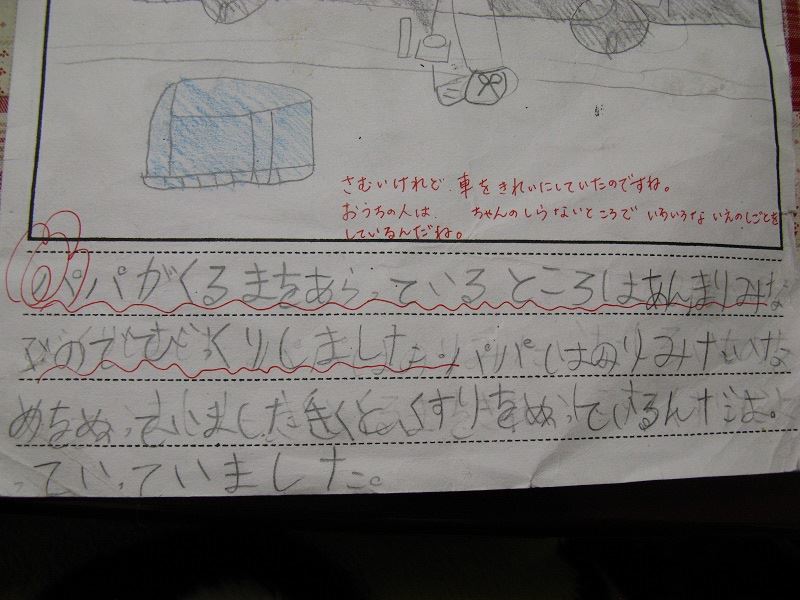 さむいけれど、車をきれいにしていたのですね。
おうちの人は、 ちゃんのしらないところで いろいろな いえのしごとを
しているんだね。
パパがくるまをあらっているところはあんまりみな
いのでびっくりしました。パパはのりみたいな
めをぬっていました。きくと、くすりをぬっているんだよ。
っていっていました。